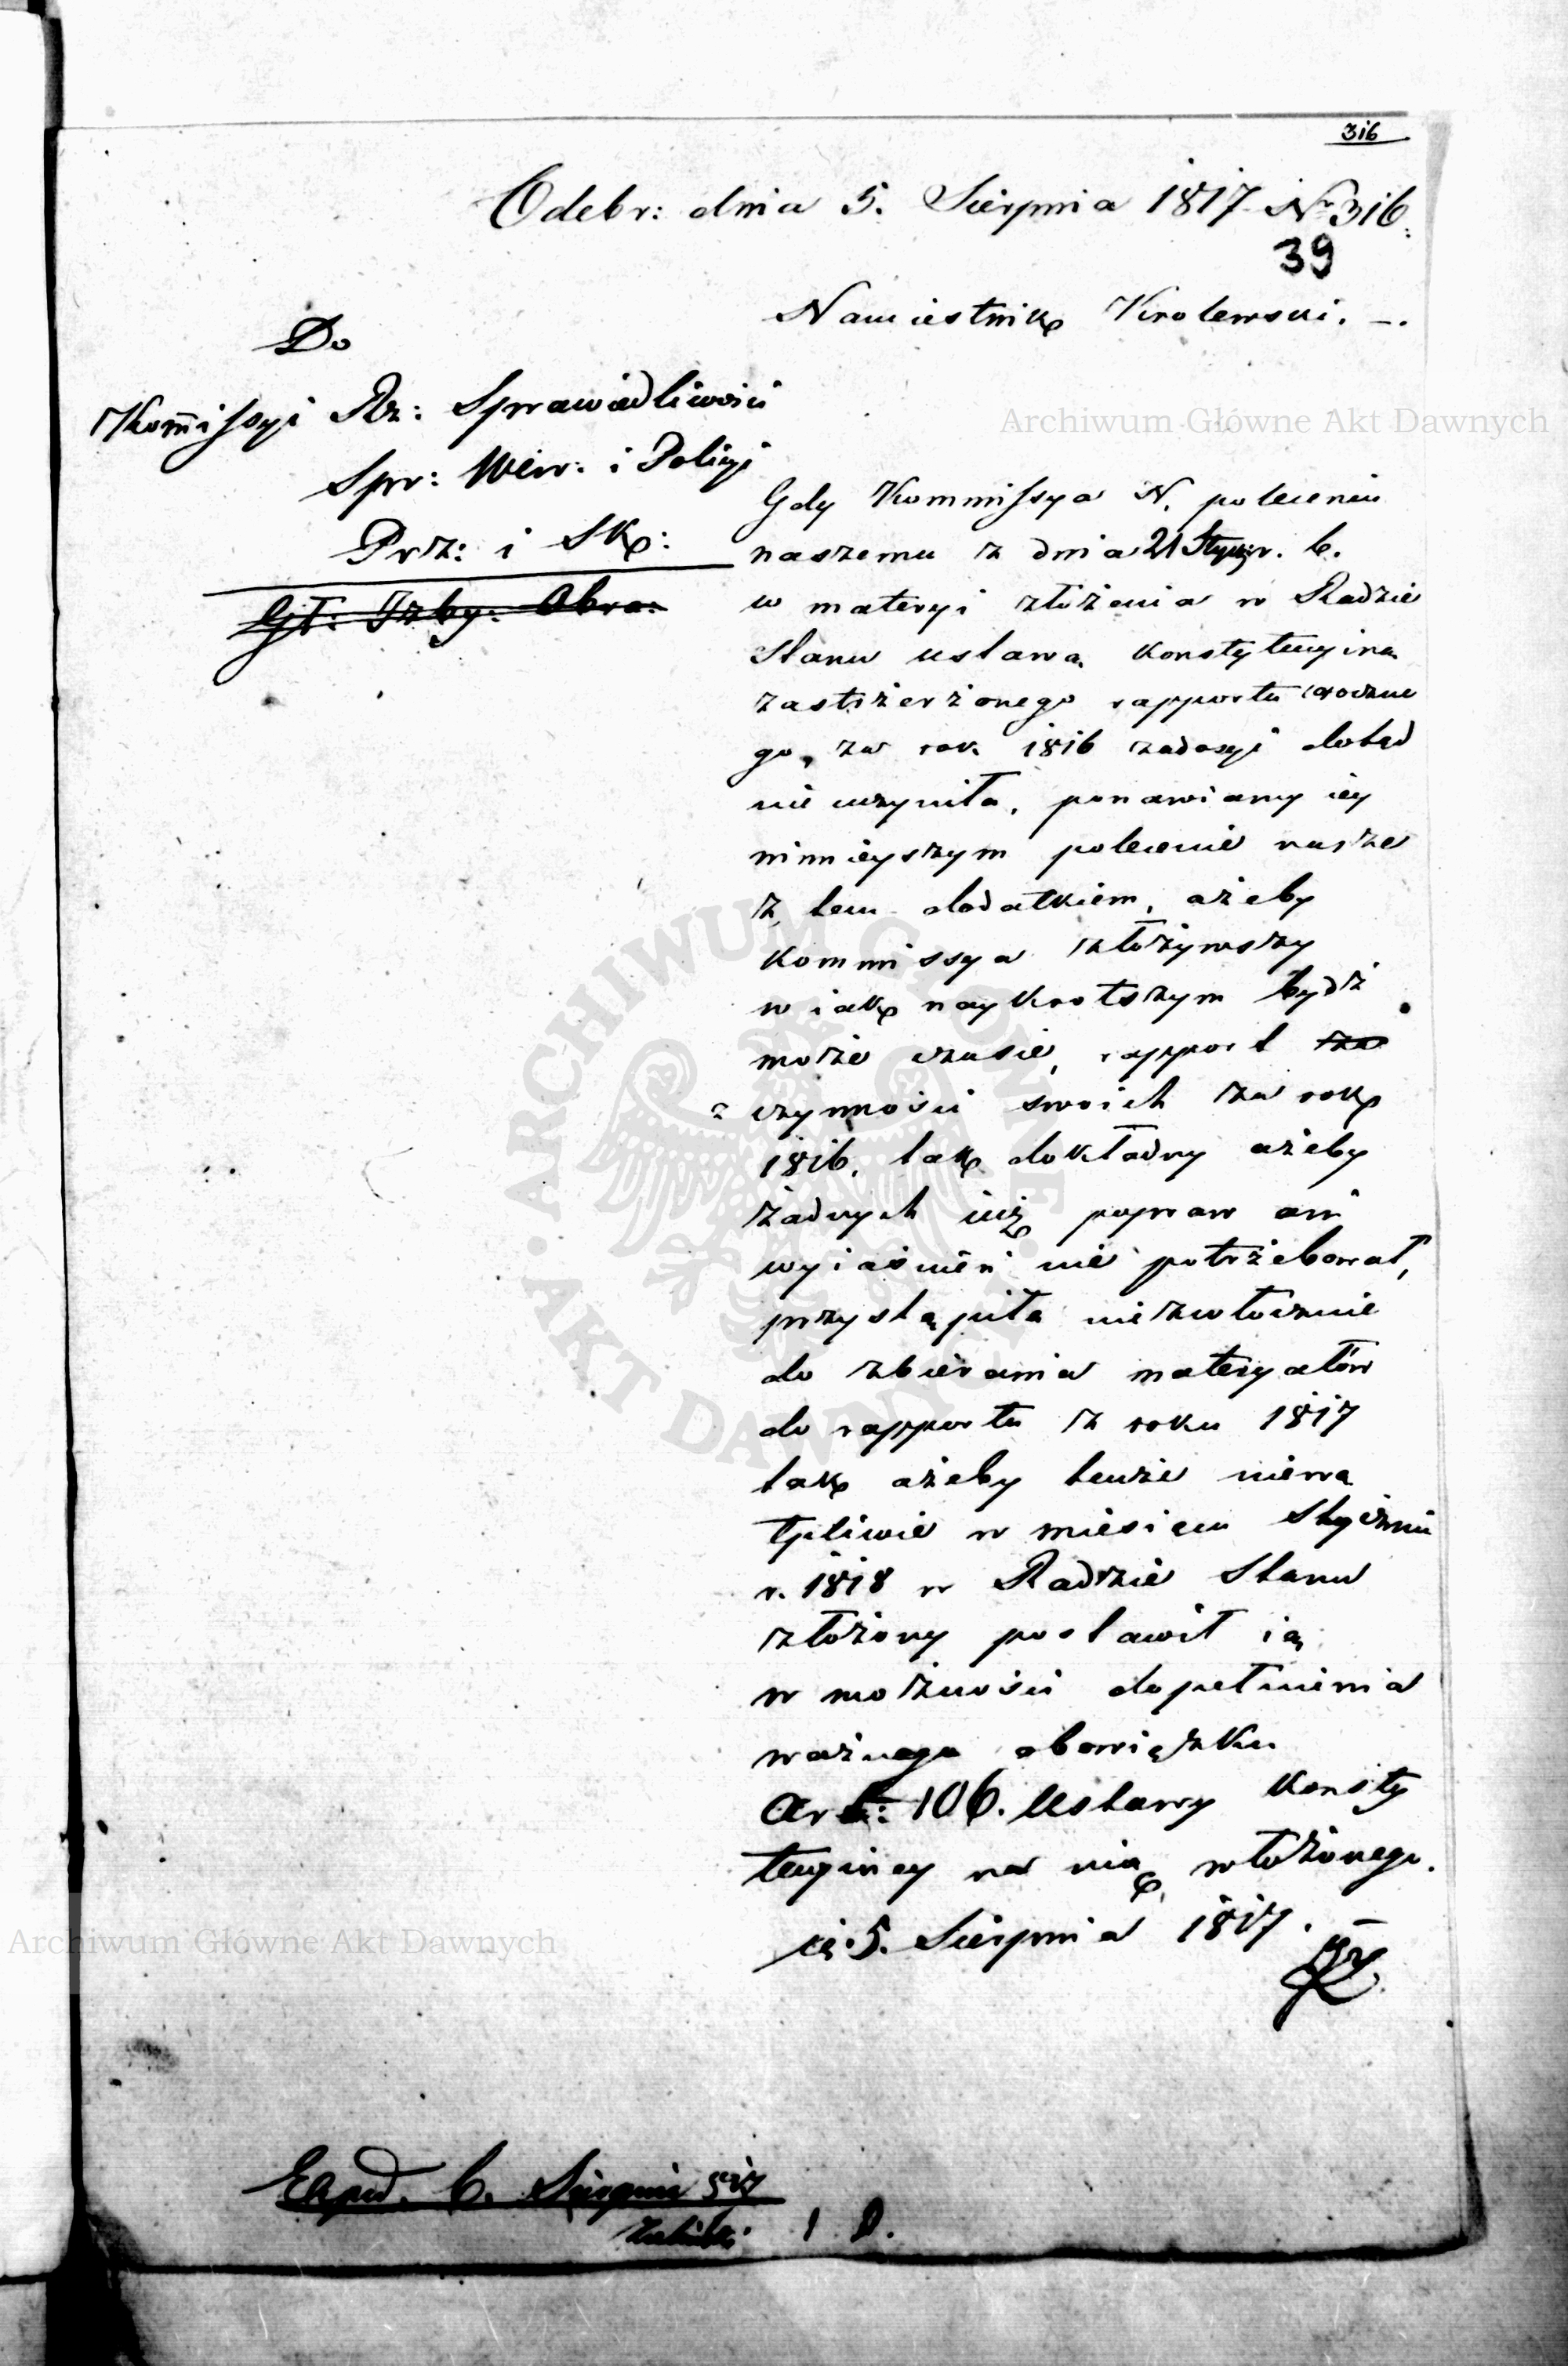 316
Odebr: dnia 5. Sierpnia 1817 Nr 316.
39
Namiestnik Krolewski. —.
Do
Kom̄issyi Rz: Sprawiedliwości
Spr: Wew: i Policyi
Prz: i Sk:
Gł: Izby: Obra:
Gdy Kommissya N. poleceniu
naszemu z dnia 21 Stycz: r. b.
w materyi złożenia w Radzie
Stanu ustawą konstytucyiną
zastrzerzonego rapportu roczne
go, za rok 1816 zadosyć dotąd
nie uczyniła, ponawiamy iey
ninieyszym polecenie nasze
z tem dodatkiem, ażeby
Kommissya złożywszy
w iak naykrotszym bydź
może czasie, rapport za
z czynności swoich za rok
1816, tak dokładny ażeby
żadnych iuż popraw ani
wyiaśnień nie potrzebował,
przystąpiła niezwłocznie
do zbierania materyałów
do rapportu z roku 1817
tak ażeby tenże niewą
tpliwie w miesiącu Styczniu
r. 1818 w Radzie Stanu
złożony postawił ią
w możności dopełnienia
ważnego obowiązku
Art: 106. Ustawy Konsty
tucyiney na nią włożonego.
5. Sierpnia 1817. —
Exped. 6. Sierpnia 817
Archiwum Główne Akt Dawnych
Archiwum Główne Akt Dawnych
ARCHIWUM GŁÓWNE AKT DAWNYCH